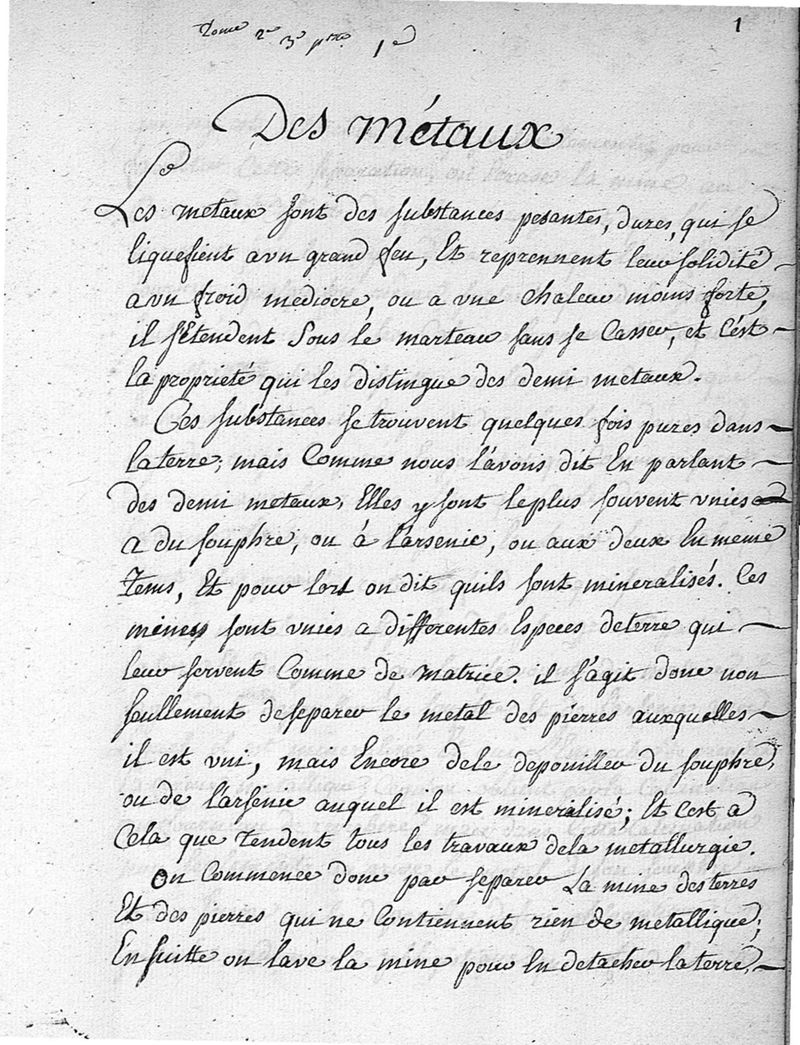 Tome 2e 3e ptie 1e
1
Des métaux
Les metaux sont des substances pesantes, dures, qui se
liquefient a vn grand feu, Et reprennent leur solidité
a vn froid mediocre, ou a vne chaleur moins forte,
il s'étendent sous le marteau sans se Casser, et C'ést
la proprieté qui les distingue des demi metaux.
Ces substances se trouvent quelques fois pures dans
la terre; mais Comme nous l'avons dit En parlant
des demi metaux, Elles y sont le plus souvent vnies
a du souphre, ou à l'arsenic, ou aux deux En même
tems, Et pour lors on dit quils sont mineralisés. Ces
mines sont vnies a differentes Especes de terre qui
leur servent Comme de matrice. il s'agit donc non
seullement de separer le metal des pierres auxquelles
il est vni, mais Encore de le depouiller du souphre,
ou de l'arsenic auquel il est mineralisé; Et C'est a
Cela que tendent tous les travaux de la metallurgie.
On Commence donc par separer La mine des terres
Et des pierres qui ne Contiennent rien de metallique;
En suitte on lave la mine pour En detacher la terre,